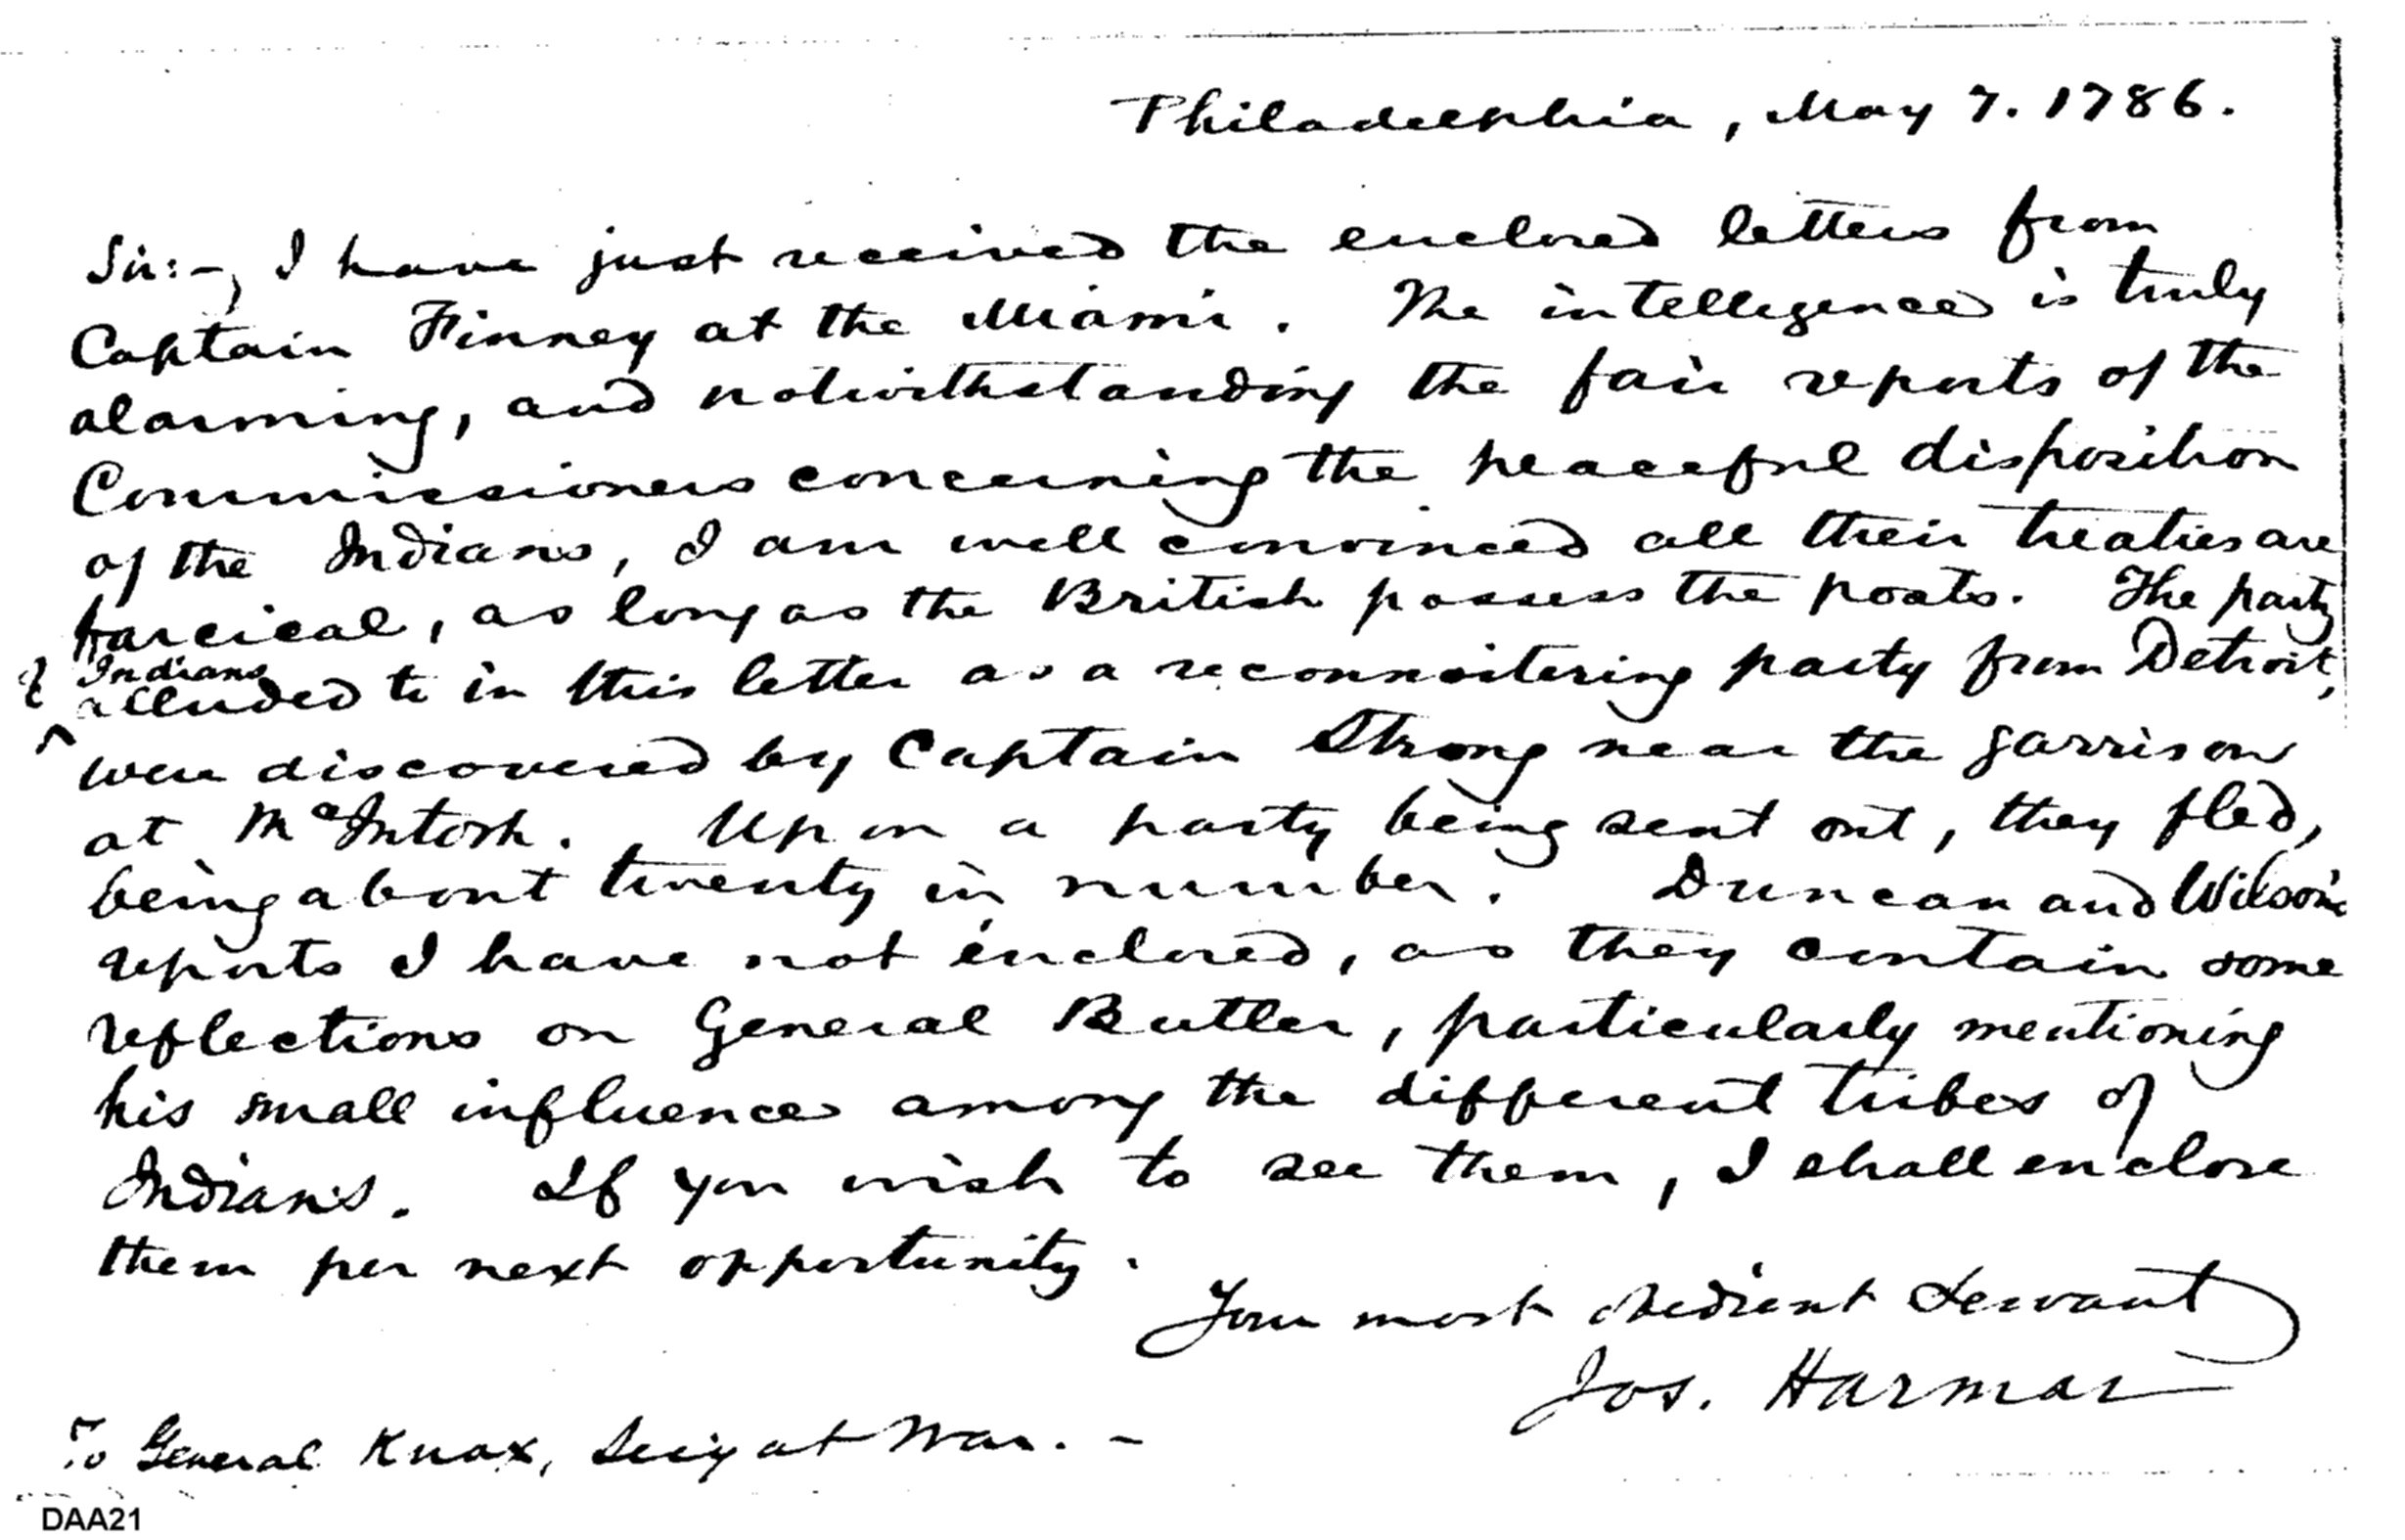 Philadelphia, May 7. 1786.
Sir:-, I have just received the enclosed letters from
Captain Finney at the Miami. The intelligence is truly
alarming, and notwithstanding the fair reports of the
Commissioners concerning the peaceful disposition
of the Indians, I am well convinced all their treaties are
farcical, as long as the British possess the posts. The party
of Indians
alluded to in this letter as a reconnoitering party from Detroit,
were discovered by Captain Strong near the garrison
at McIntosh. Upon a party being sent out, they fled,
being about twenty in number. Duncan and Wilson's
reports I have not enclosed, as they contain some
reflections on General Butler, particularly mentioning
his small influence among the different tribes of
Indians. If you wish to see them, I shall enclose
them per next opportunity.
Your most obedient Servant
Jos. Harmar
To General Knox, Sec'y at War. -
DAA21